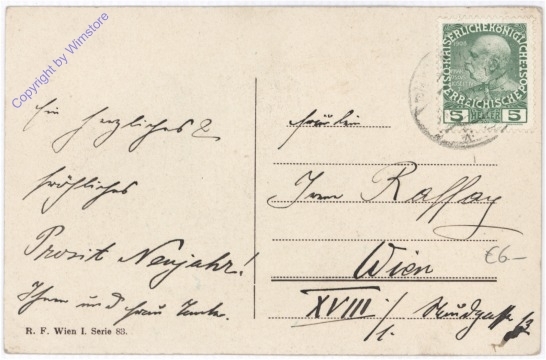 Copyright by Wimstore
KAISERLICHE KÖNIGLICHE
ÖSTERREICHISCHE
1908
5 HELLER 5
Ein herzliches &
fröhliches
Prosit Neujahr!
Ihnen und Frau Tante.
R. F. Wien I. Serie 83.
Fräulein
Raffay
Wien
XVIII/1.
€6-